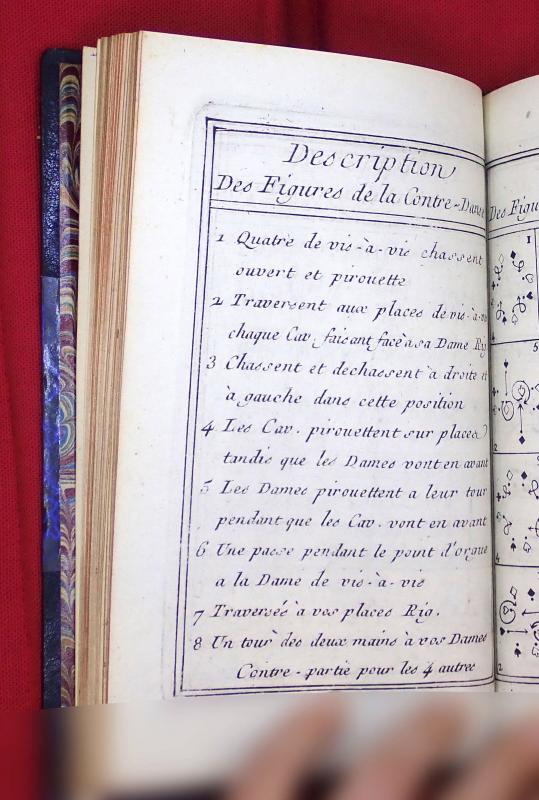 Description
Des Figures de la Contre-Danse
1 Quatre de vis-à-vis chassent
ouvert et pirouette
2 Traversent aux places de vis-à-vis
chaque Cav. faisant face à sa Dame Rig
3 Chassent et dechassent à droite et
à gauche dans cette position
4 Les Cav. pirouettent sur places
tandis que les Dames vont en avant
5 Les Dames pirouettent a leur tour
pendant que les Cav. vont en avant
6 Une passe pendant le point d'orgue
a la Dame de vis-à-vis
7 Traversés à vos places Rig.
8 Un tour des deux mains à vos Dames
Contre-partie pour les 4 autres
Des Figu
1
5
2
4
2